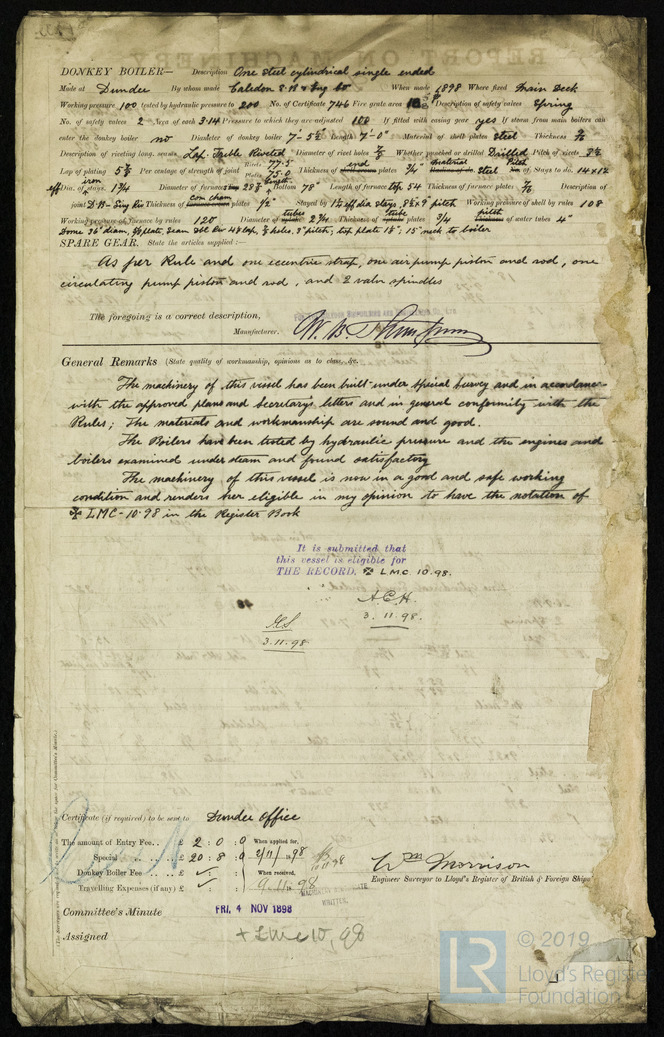 DONKEY BOILER— Description One steel cylindrical single ended
Made at Dundee By whom made Caledon S.B & Eng Co When made 1898 Where fixed Main Deck
Working pressure 100 tested by hydraulic pressure to 200 No. of Certificate 746 Fire grate area Description of safety valves Spring
No. of safety valves 2 Area of each 3.14 Pressure to which they are adjusted 108 If fitted with easing gear yes If steam from main boilers can
enter the donkey boiler no Diameter of donkey boiler 7'-5½ Length 7'-0" Material of shell plates Steel Thickness
Description of riveting long. seams Lap. Treble Riveted Diameter of rivet holes Whether punched or drilled Drilled Pitch of rivets
Lap of plating Per centage of strength of joint Rivets 77.5 Plates 75.0 Thickness of end plates 3/4 material steel Pitch of Stays to do. 14 x 12
eff Dia. of iron stays 1¾ Diameter of furnace Bottom 78" Length of furnace top 54 Thickness of furnace plates Description of
joint Thickness of com cham plates ½" Stayed by 1½ eff dia stays, 8½ x 9 pitch Working pressure of shell by rules 108
Working pressure of furnace by rules 120 Diameter of tubes 2¾ Thickness of tube plates 3/4 pitch of water tubes 4"
Dome 36" diam, plate, seam dbl riv lap, holes, 3" pitch, top plate 15" neck to boiler
SPARE GEAR. State the articles supplied :—
As per Rule and one eccentric strap, one air pump piston and rod, one
circulating pump piston and rod, and 2 valve spindles
The foregoing is a correct description,
Manufacturer. W. B. Thompson
General Remarks (State quality of workmanship, opinions as to class, &c.
The machinery of this vessel has been built under Special Survey and in accordance
with the approved plans and Secretary's letters and in general conformity with the
Rules; The materials and workmanship are sound and good.
The Boilers have been tested by hydraulic pressure and the engines and
boilers examined under steam and found satisfactory
The machinery of this vessel is now in a good and safe working
condition and renders her eligible in my opinion to have the notation of
✠ LMC-10.98 in the Register Book
It is submitted that
this vessel is eligible for
THE RECORD. ✠ LMC 10.98.
A.C.H.
3.11.98.
3.11.98
Certificate (if required) to be sent to Dundee Office
The amount of Entry Fee.. £ 2 : 0 : 0 When applied for,
Special £ 20 : 8 : 0 2/11/1898
Donkey Boiler Fee £ When received,
Travelling Expenses (if any) £ 9.11.1898
MACHINERY CERTIFICATE
WRITTEN.
Wm Morrison
Engineer Surveyor to Lloyd's Register of British & Foreign Shipping
Committee's Minute FRI. 4 NOV 1898
Assigned + LMC 10,98
LR © 2019
Lloyd's Register
Foundation